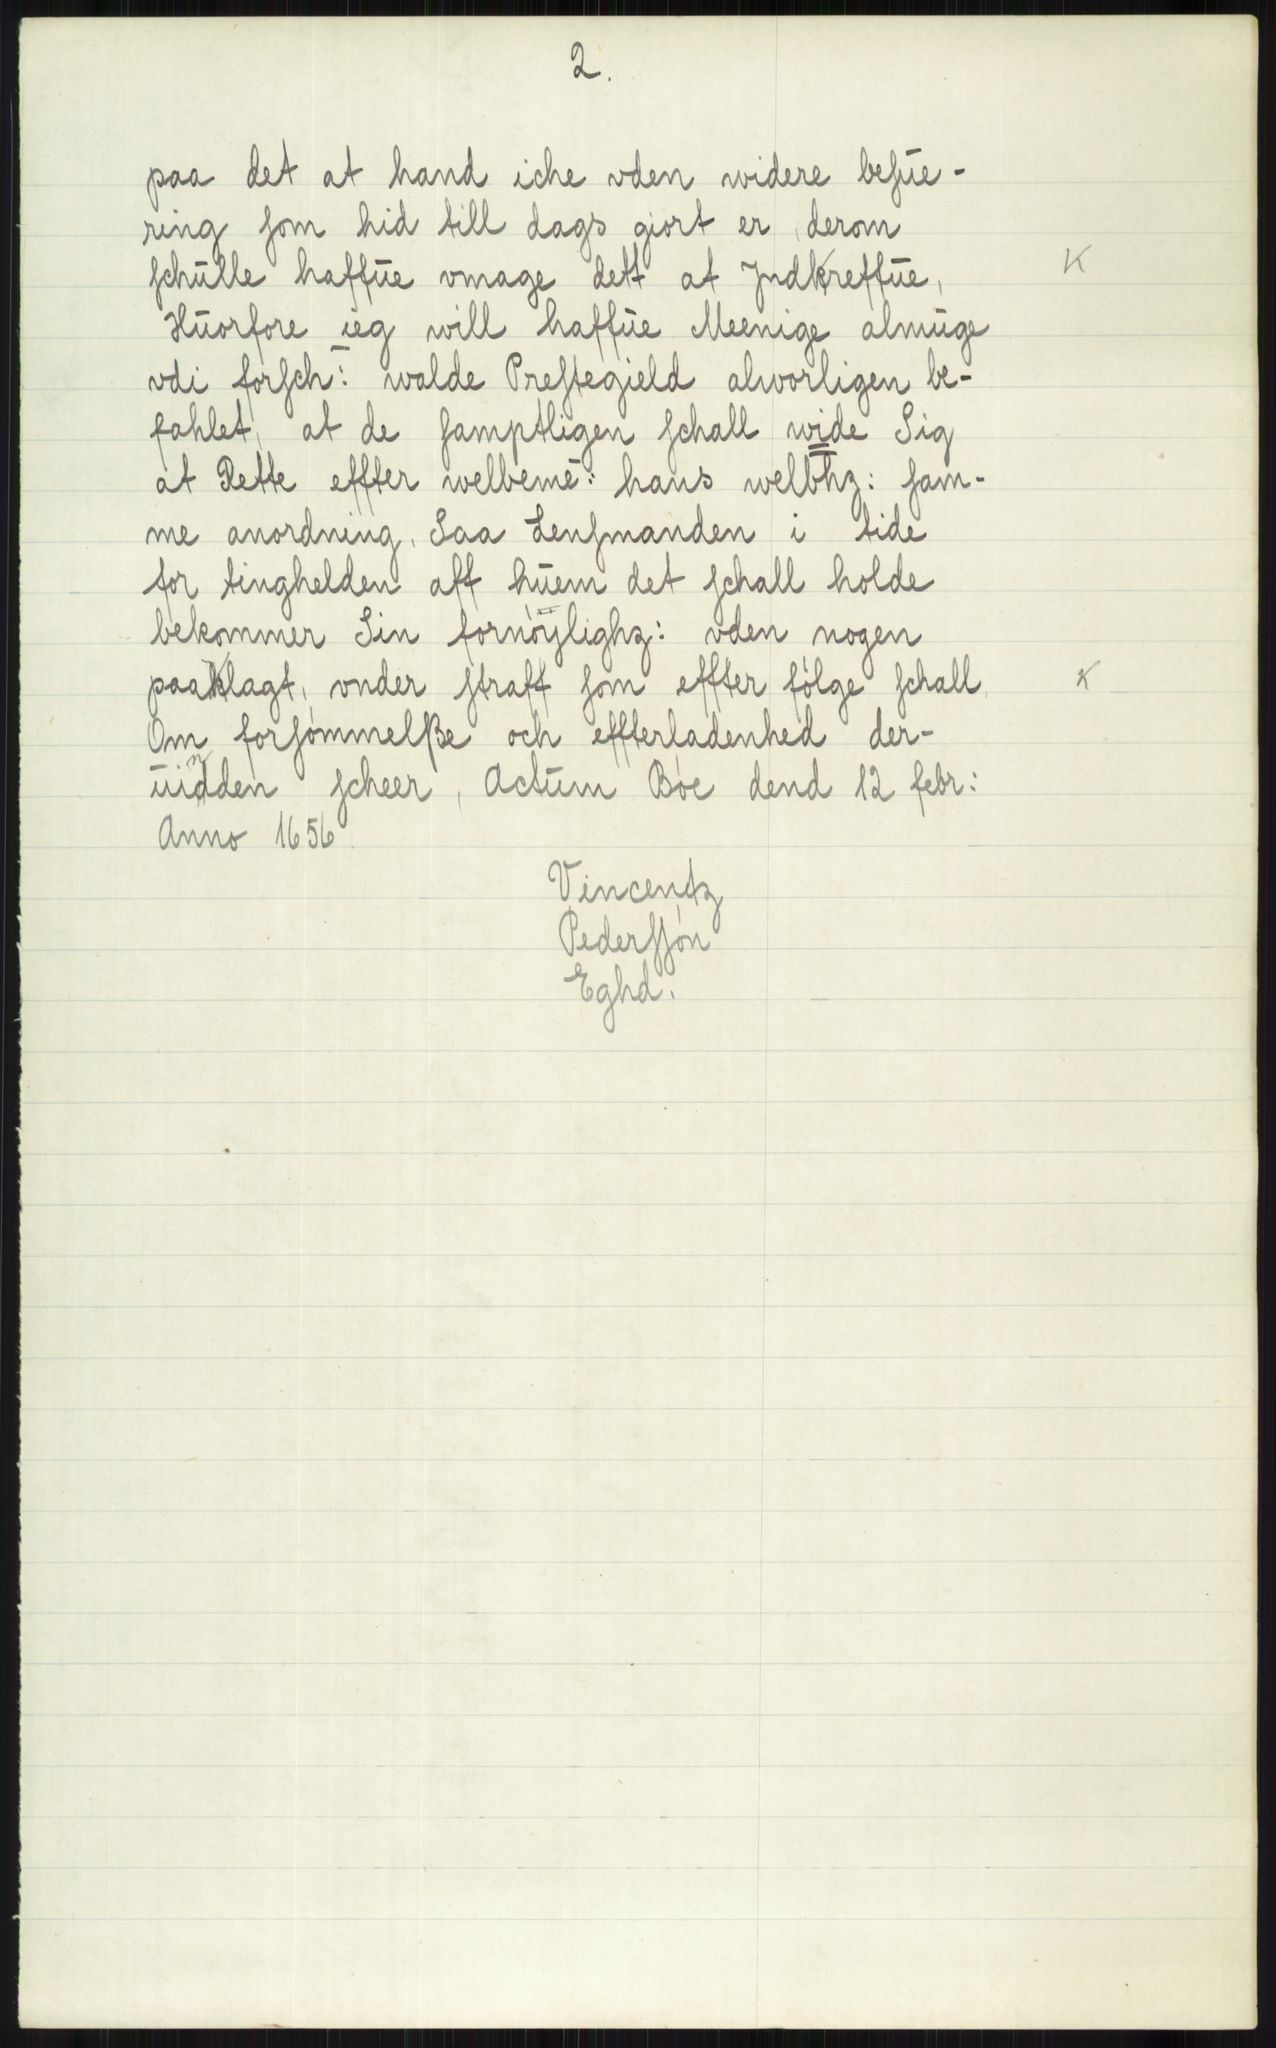 2.
paa det at hand iche vden widere besūe-
ring som hid till dags giort er, derom
schūlle haffūe vmage dett at Jndkreffūe,
K
Hūorfore ieg will haffūe Meenige almūge
vdi forsch: walde Prestegield alvorligen be-
fahlet, at de samptligen schall wide Sig
at Rette effter welbemē: hans welbhz: sam-
me anordning, Saa Lensmanden i tide
for tinghelden aff hūem det schall holde
bekommer Sin fornöÿlighz: vden nogen
paaklagt, vnder straff som effter fölge schall
K
Om forsömmelße och effterladenhed der-
ūidden scheer, Actūm Böe dend 12 febr:
Anno 1656
Vincentz
Pederssön
Eghd.